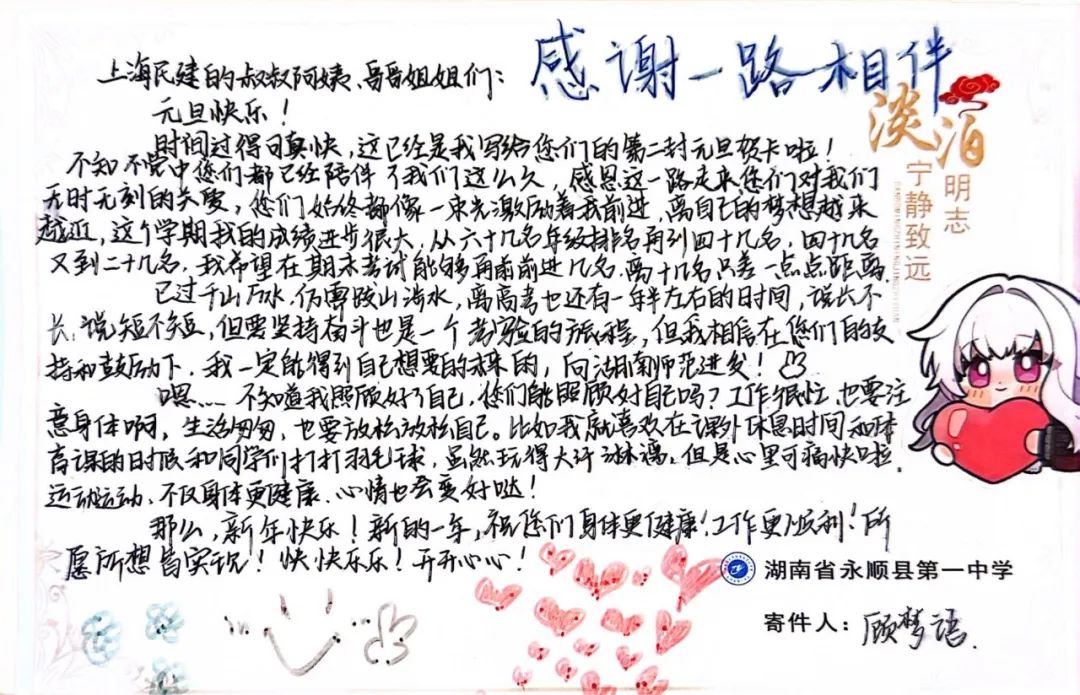 感谢一路相伴
淡泊
明志
宁静致远
上海民建的叔叔阿姨、哥哥姐姐们：
元旦快乐！
时间过得可真快，这已经是我写给您们的第二封元旦贺卡啦！
不知不觉中您们都已经陪伴了我们这么久，感恩这一路走来您们对我们
无时无刻的关爱，您们始终都像一束光激励着我前进，离自己的梦想越来
越近，这个学期我的成绩进步很大，从六十几名年级排名再到四十几名，四十几名
又到二十几名，我希望在期末考试能够再前前进几名，离十几名只差一点点距离。
已过千山万水，仍需跋山涉水，离高考也还有一年半左右的时间，说长不
长，说短不短，但要坚持奋斗也是一个考验的旅程，但我相信在您们的支
持和鼓励下，我一定能得到自己想要的未来的，向湖南师范进发！
嗯……不知道我照顾好了自己，您们能照顾好自己吗？工作很忙，也要注
意身体啊，生活匆匆，也要放松放松自己。比如我就喜欢在课外休息时间和体
育课的时候和同学们打打羽毛球，虽然玩得大汗淋漓，但是心里可痛快啦。
运动运动，不仅身体更健康，心情也会变好哒！
那么，新年快乐！新的一年，祝您们身体更健康！工作更顺利！所
愿所想皆实现！快快乐乐！开开心心！
湖南省永顺县第一中学
寄件人：顾梦语